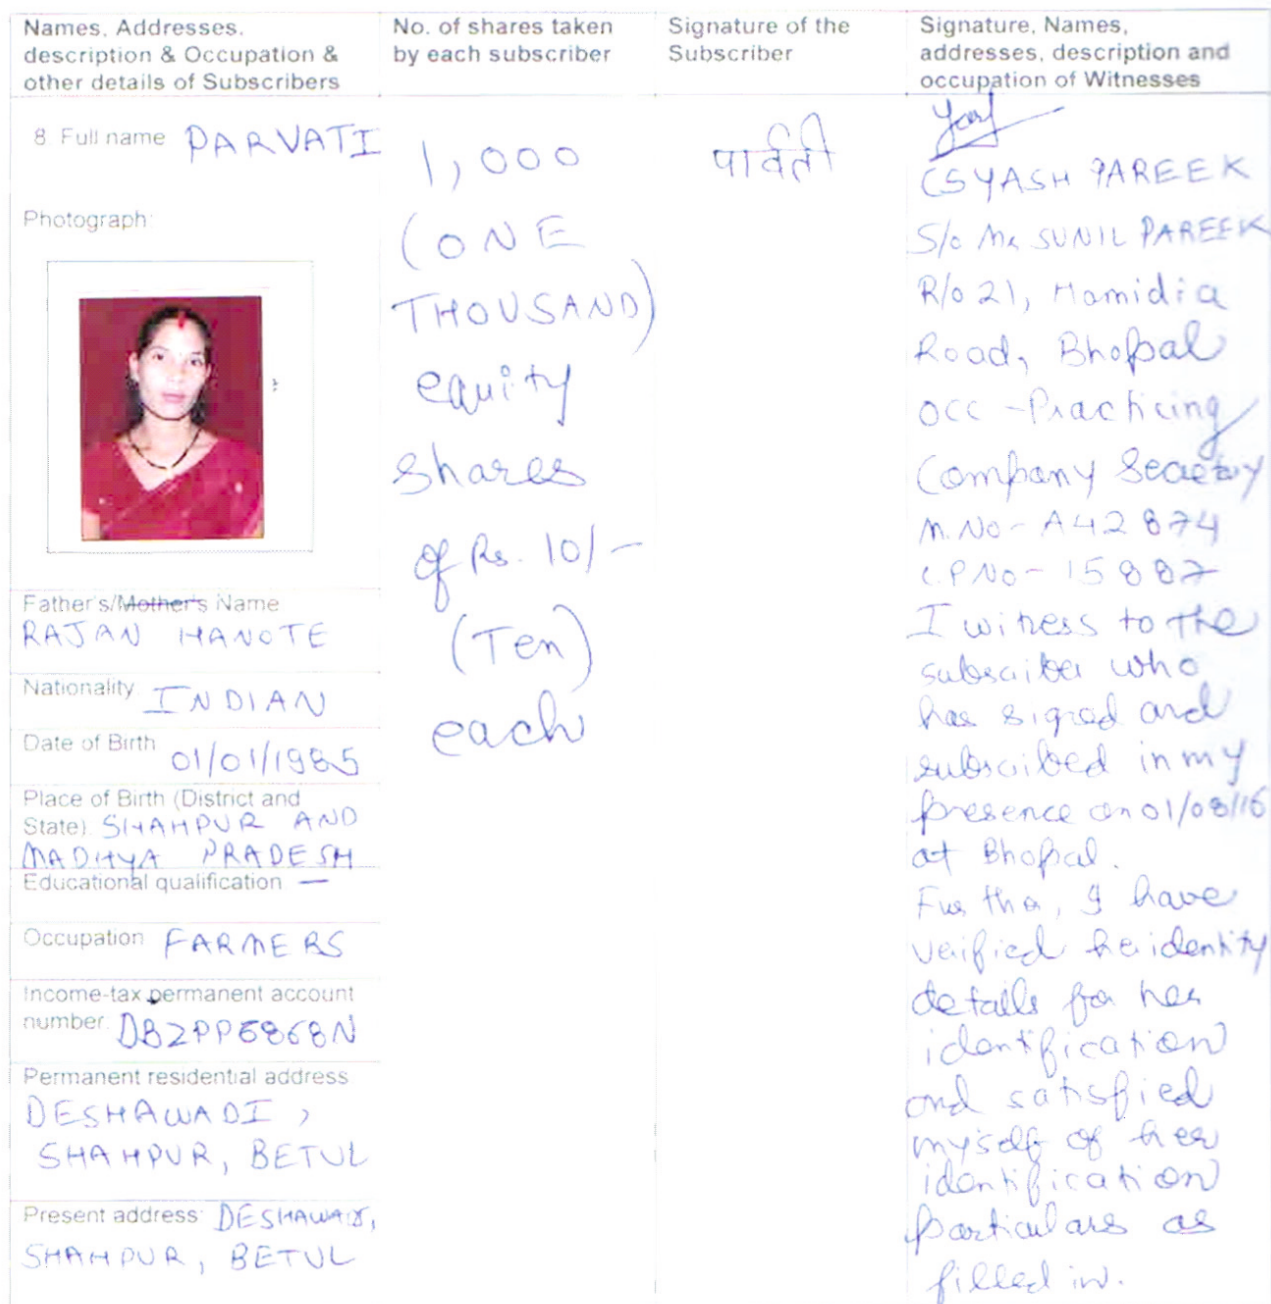 Names, Addresses,
description & Occupation &
other details of Subscribers
No. of shares taken
by each subscriber
Signature of the
Subscriber
Signature, Names,
addresses, description and
occupation of Witnesses
8 Full name PARVATI
Photograph:
Father's/Mother's Name
RAJAN HANOTE
Nationality: INDIAN
Date of Birth 01/01/1985
Place of Birth (District and
State): SHAHPUR AND
MADHYA PRADESH
Educational qualification —
Occupation FARMERS
Income-tax permanent account
number: DBZPP6868N
Permanent residential address
DESHAWADI,
SHAHPUR, BETUL
Present address: DESHAWADI,
SHAHPUR, BETUL
1,000
(ONE
THOUSAND)
equity
shares
of Rs. 10/-
(Ten)
each
पार्वती
CS YASH PAREEK
S/o Mr SUNIL PAREEK
R/o 21, Hamidia
Road, Bhopal
OCC - Practicing
Company Secretary
M.No- A42874
C.P No- 15887
I witness to the
subscriber who
has signed and
subscribed in my
presence on 01/08/16
at Bhopal.
Further, I have
verified her identity
details for her
identification
and satisfied
myself of her
identification
particulars as
filled in.